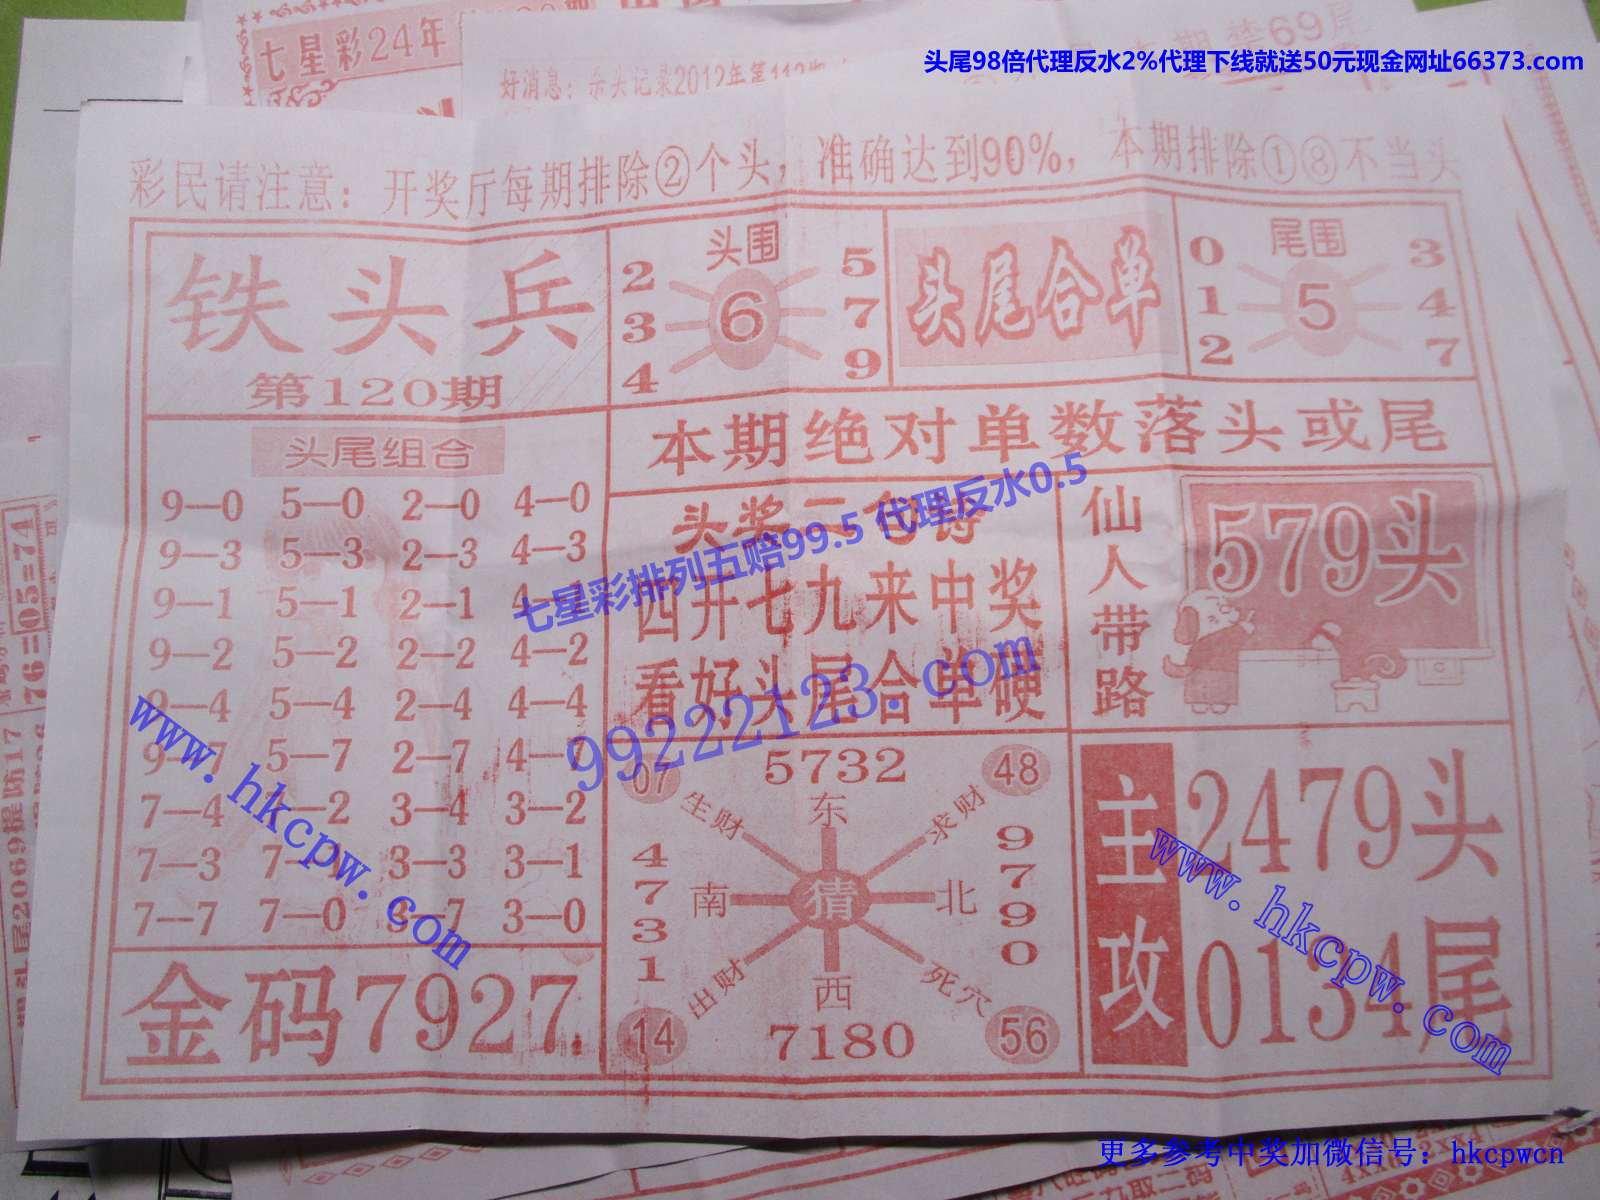 头尾98倍代理反水2%代理下线就送50元现金网址66373.com
七星彩24年
好消息：杀头记录2012年第
彩民请注意：开奖厅每期排除②个头，准确达到90%，本期排除①⑧不当头
铁头兵
第120期
头围
2 5
3 6 7
4 9
头尾合单
尾围
0 3
1 5 4
2 7
本期绝对单数落头或尾
头尾组合
9—0 5—0 2—0 4—0
9—3 5—3 2—3 4—3
9—1 5—1 2—1
9—2 5—2 2—2 4—2
9—4 5—4 2—4 4—4
9—7 5—7 2—7 4—7
7—4 7—2 3—4 3—2
7—3 7—1 3—3 3—1
7—7 7—0 3—7 3—0
金码7927
头奖二
四开七九来中奖
看好头尾合单硬
仙人带路
579头
07 5732 48
生财 东 求财
4731 南 猜 北 9790
出财 西 死穴
14 7180 56
主攻
2479头
0134尾
七星彩排列五赔99.5 代理反水0.5
99222123.com
www.hkcpw.com
www.hkcpw.com
76=05=74
更多参考中奖加微信号：hkcpwcn